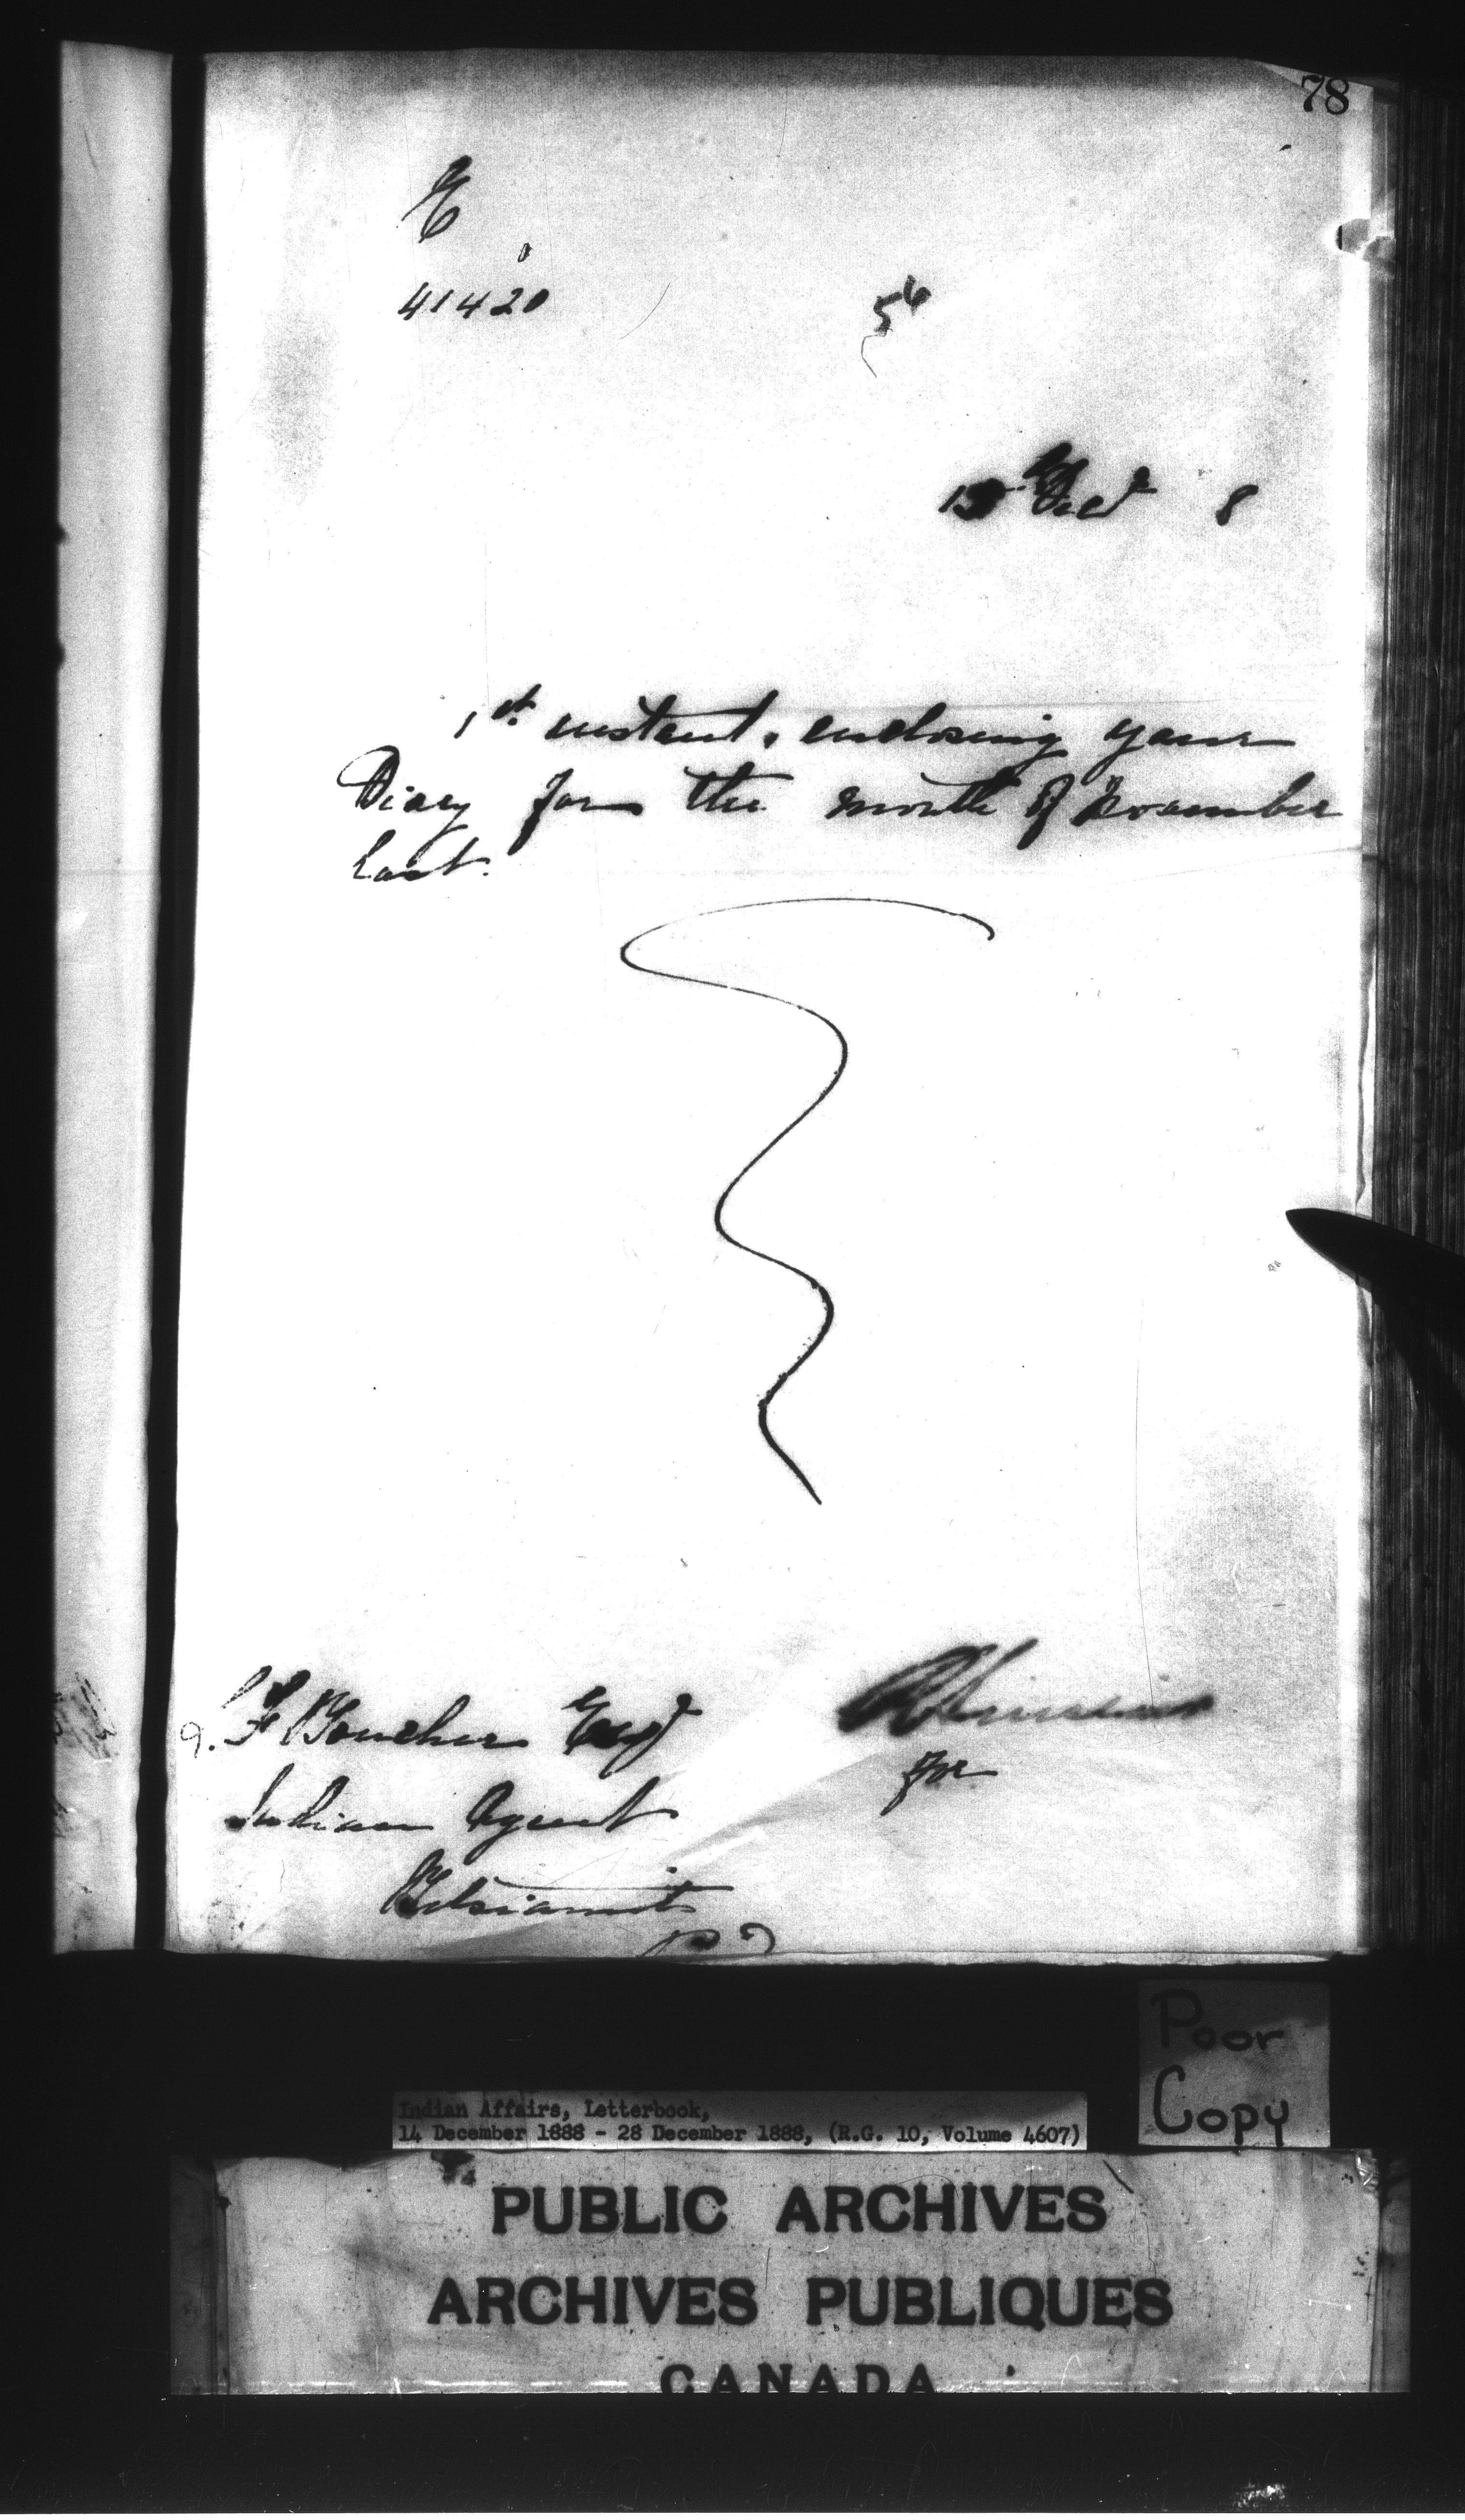 78
E
41420
56
15th Decr 8
1st instant, enclosing your
Diary for the month of November
last.
L. F. Boucher Esqr
for
Indian Agent
Betsiamits
P. Q
Poor
Copy
Indian Affairs, Letterbook,
14 December 1888 - 28 December 1888, (R.G. 10, Volume 4607)
PUBLIC ARCHIVES
ARCHIVES PUBLIQUES
CANADA